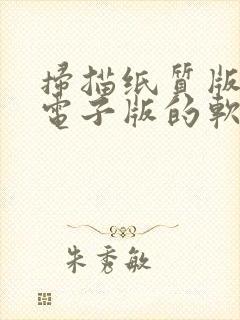 掃描纸質版
電子版的軟
朱秀敏